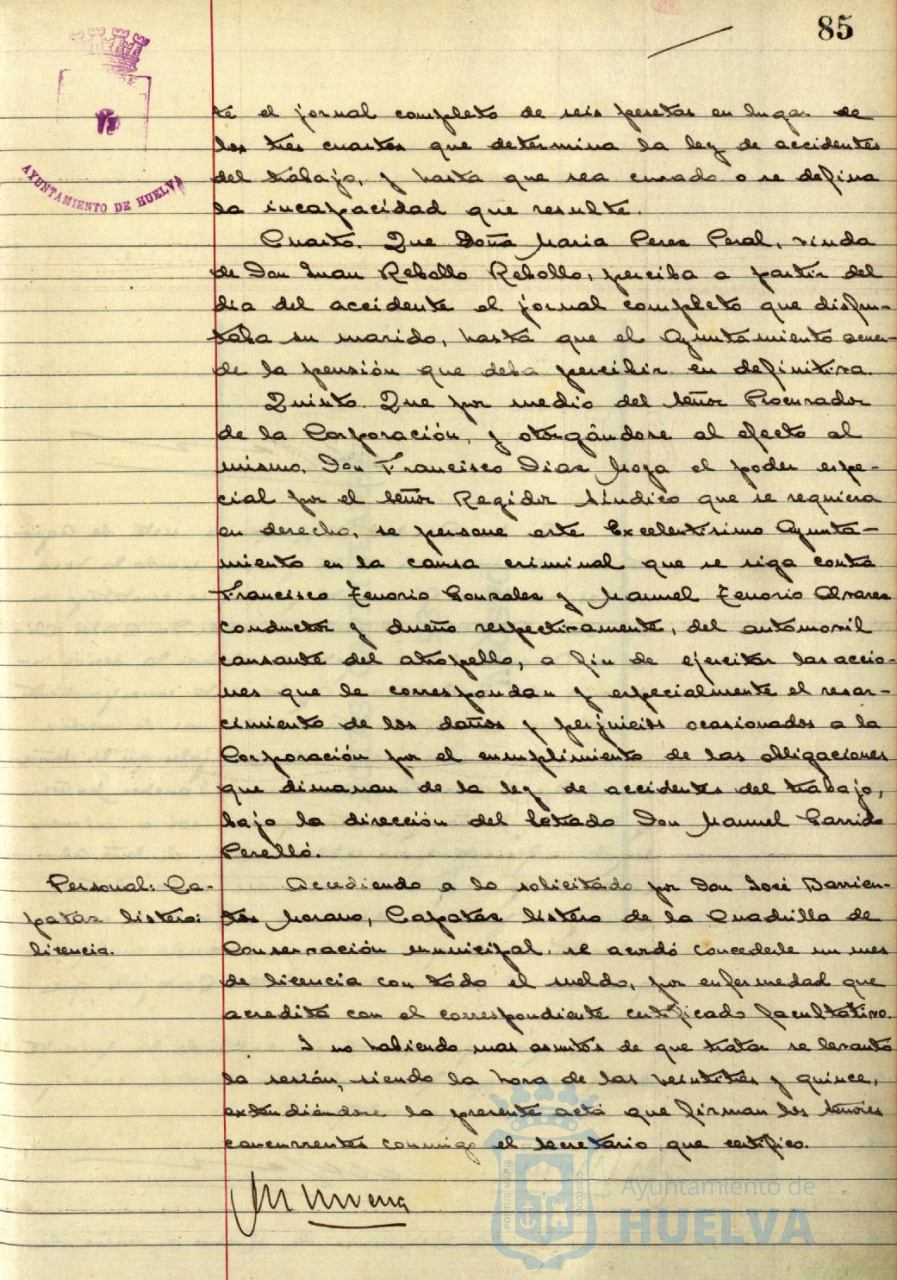 85
AYUNTAMIENTO DE HUELVA
te el jornal completo de seis pesetas en lugar de
los tres cuartos que determina la ley de accidentes
del trabajo, y hasta que sea curado o se defina
la incapacidad que resulte.
Cuarto. Que Doña Maria Perez Peral, viuda
de Don Juan Rebollo Rebollo, perciba a partir del
dia del accidente el jornal completo que disfru-
taba su marido, hasta que el Ayuntamiento acuer-
de la pensión que deba percibir en definitiva.
Quinto. Que por medio del señor Procurador
de la Corporación, y otorgándose al efecto al
mismo, Don Francisco Diaz Moya el poder espe-
cial por el señor Regidor Síndico que se requiera
en derecho, se persone este Excelentísimo Ayunta-
miento en la causa criminal que se siga contra
Francisco Tenorio Gonzalez y Manuel Tenorio Alvarez
conductor y dueño respectivamente, del automovil
causante del atropello, a fin de ejercitar las accio-
nes que le correspondan y especialmente el resar-
cimiento de los daños y perjuicios ocasionados a la
Corporación por el cumplimiento de las obligaciones
que dimanan de la ley de accidentes del trabajo,
bajo la dirección del letrado Don Manuel Garrido
Perelló.
Personal: Ca-
pataz listero:
licencia.
Accediendo a lo solicitado por Don José Barrien-
tos Morano, Capataz listero de la Cuadrilla de
Conservación municipal, se acordó concederle un mes
de licencia con todo el sueldo, por enfermedad que
acredita con el correspondiente certificado facultativo.
Y no habiendo mas asuntos de que tratar se levantó
la sesión, siendo la hora de las veintitrés y quince,
extendiéndose la presente acta que firman los señores
concurrentes conmigo el secretario que certifico.
Ayuntamiento de
HUELVA